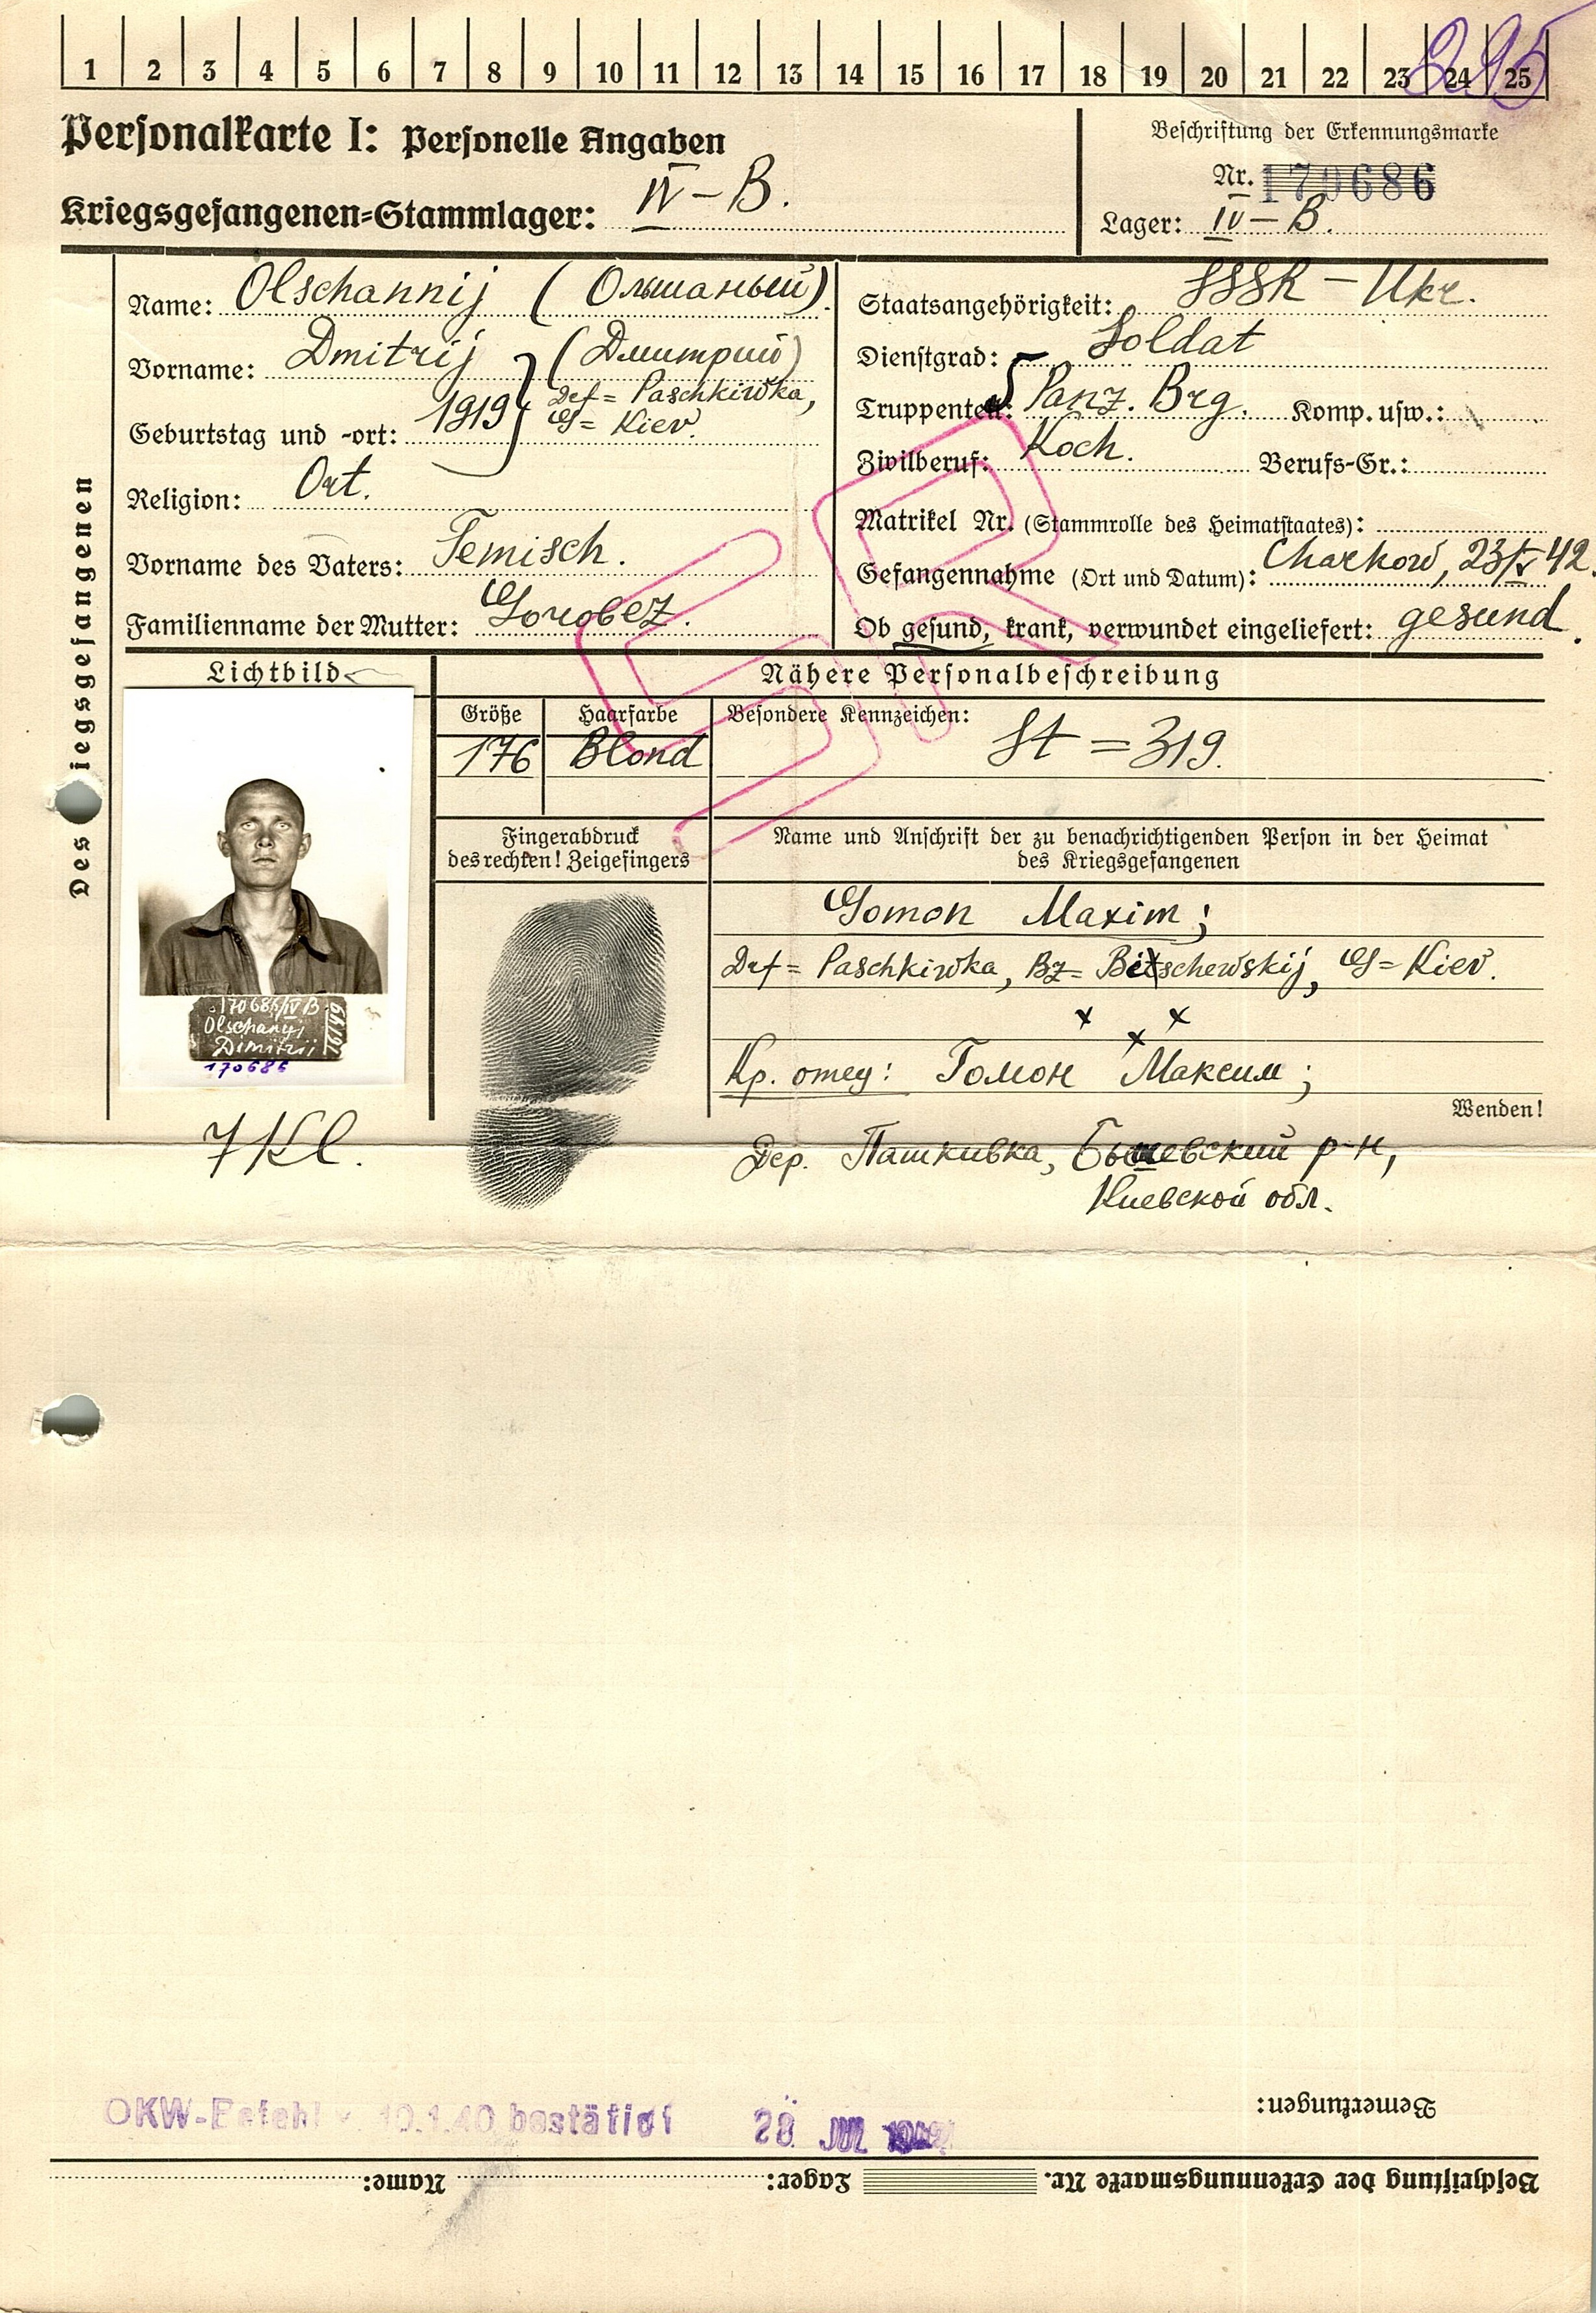 1 2 3 4 5 6 7 8 9 10 11 12 13 14 15 16 17 18 19 20 21 22 23 24 25
295
Personalkarte I: Personelle Angaben
Kriegsgefangenen-Stammlager: IV – B.
Beschriftung der Erkennungsmarke
Nr. 170686
Lager: IV – B.
Des iegsgefangenen
Name: Olschannij (Ольшаный)
Vorname: Dmitrij (Дмитрий)
Geburtstag und -ort: 1919 Drf = Paschkiwka,
G = Kiev.
Religion: Ort.
Vorname des Vaters: Temisch.
Familienname der Mutter: Gorobez.
Staatsangehörigkeit: SSSR – Ukr.
Dienstgrad: Soldat
Truppenteil: 5 Panz. Brg. Komp. usw.:
Zivilberuf: Koch. Berufs-Gr.:
Matrikel Nr. (Stammrolle des Heimatstaates):
Gefangennahme (Ort und Datum): Charkow, 23/V 42.
Ob gesund, krank, verwundet eingeliefert: gesund.
SU
Lichtbild
Nähere Personalbeschreibung
Größe Haarfarbe Besondere Kennzeichen:
176 Blond St = 319.
Fingerabdruck
des rechten! Zeigefingers
Name und Anschrift der zu benachrichtigenden Person in der Heimat
des Kriegsgefangenen
Gomon Maxim;
Drf = Paschkiwka, Bz = Bitschewskij, G = Kiev.
x x x
Кр. отец: Гомон Максим;
Wenden!
Дер. Пашкивка, Бышевский р-н,
Киевской обл.
170686/IV B
Olschanyi
Dimitrij
170686
7 Kl.
OKW-Befehl v. 10.1.40 bestätigt 28 JUL 1942
Bemerkungen:
Beschriftung der Erkennungsmarke Nr. Lager: Name: